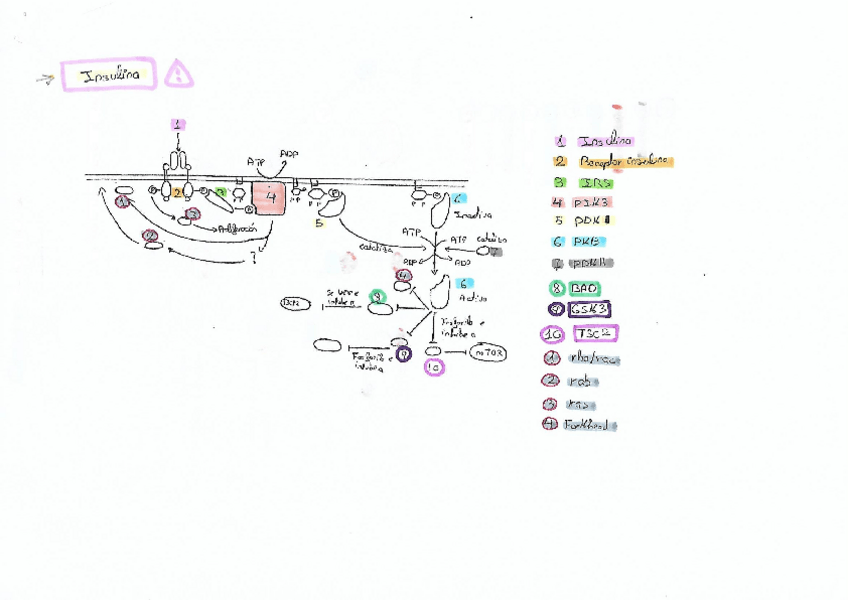 Insulina
1
ATP
ADP
2
3
4
P P
5
6
Inactiva
ATP
ATP
cataliza
cataliza
ADP
ADP
1
3
Proliferación
2
?
4
6
Activa
8
Se une e
inhibe
Bcl2
Fosforila e
inhibe
9
Fosforila e
inhibe
10
mTOR
1 Insulina
2 Receptor insulina
3 IRS
4 PI3K3
5 PDK1
6 PKB
8 BAD
9 GSK3
10 TSC2
1 rho/rac
2 rab
3 ras
4 Forkhead